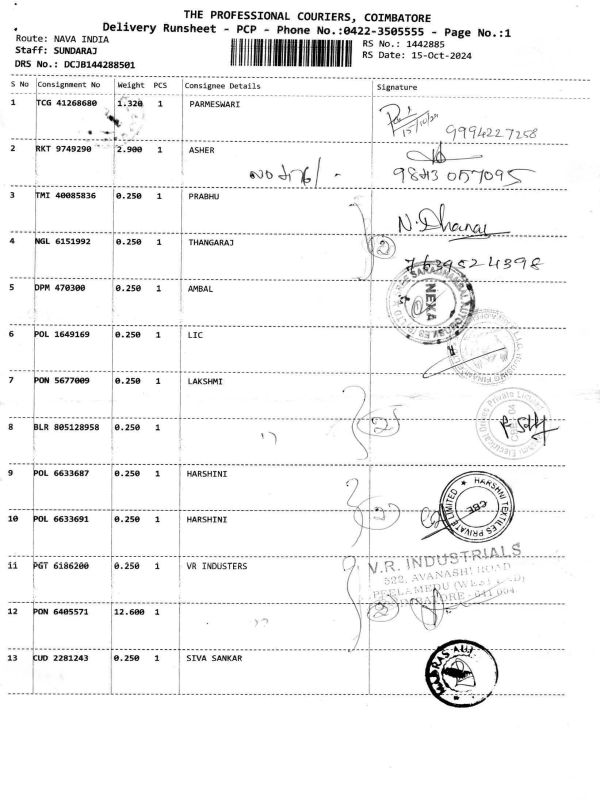 THE PROFESSIONAL COURIERS, COIMBATORE
Delivery Runsheet - PCP - Phone No.:0422-3505555 - Page No.:1
Route: NAVA INDIA
RS No.: 1442885
Staff: SUNDARAJ
RS Date: 15-Oct-2024
DRS No.: DCJB144288501
S No Consignment No Weight PCS Consignee Details Signature
1 TCG 41268680 1.320 1 PARMESWARI
15/10/24 9994227258
2 RKT 9749290 2.900 1 ASHER
9843 057095
3 TMI 40085836 0.250 1 PRABHU
N. Dhanaj
4 NGL 6151992 0.250 1 THANGARAJ
2
7639524398
5 DPM 470300 0.250 1 AMBAL
NEXA
6 POL 1649169 0.250 1 LIC
7 PON 5677009 0.250 1 LAKSHMI
8 BLR 805128958 0.250 1
2
9 POL 6633687 0.250 1 HARSHINI
HARSHNI TEXTILES PRIVATE LIMITED
CBE
10 POL 6633691 0.250 1 HARSHINI
2
11 PGT 6186200 0.250 1 VR INDUSTERS
V.R. INDUSTRIALS
522, AVANASHI ROAD
PEELAMEDU (WEST END)
COIMBATORE - 641 004.
12 PON 6405571 12.600 1
2
13 CUD 2281243 0.250 1 SIVA SANKAR